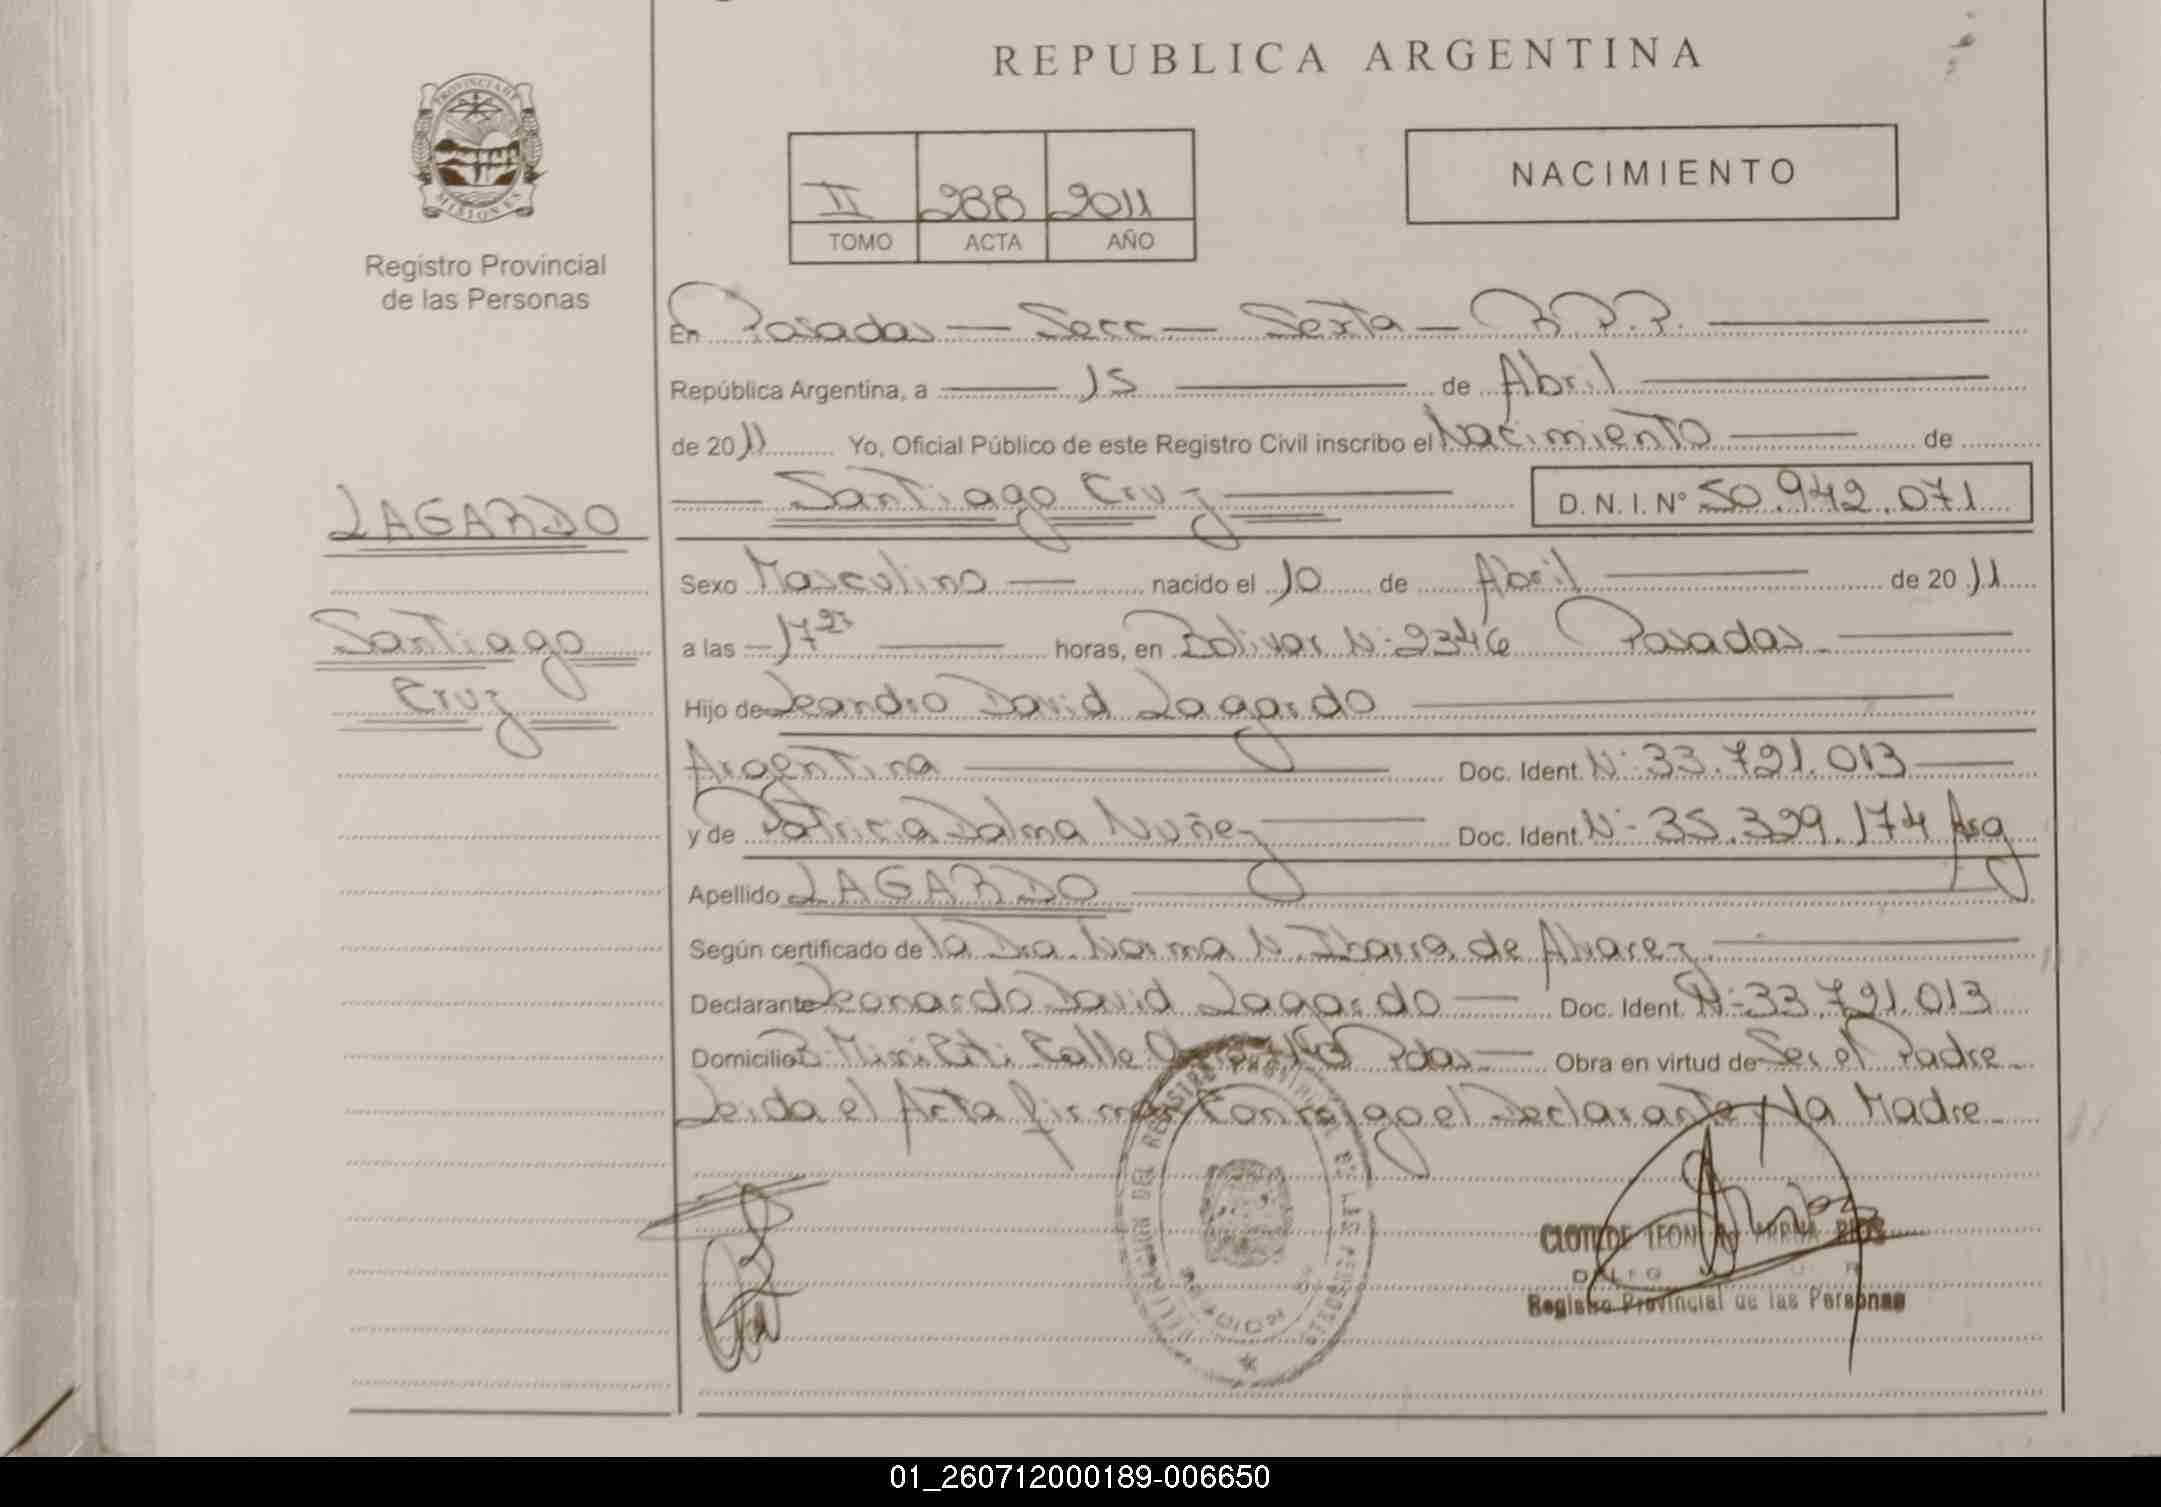 REPUBLICA ARGENTINA
PROVINCIA DE
MISIONES
Registro Provincial
de las Personas
II 288 2011
TOMO ACTA AÑO
NACIMIENTO
En Posadas — Secc — Sexta — R.P.P.
República Argentina, a 15 de Abril
de 2011 Yo, Oficial Público de este Registro Civil inscribo el Nacimiento de
Santiago Cruz D.N.I. Nº 50.942.071
LAGARDO
Santiago
Cruz
Sexo Masculino nacido el 10 de Abril de 2011
a las 17 horas, en Bolivar Nº 2346 Posadas
Hijo de Leandro David Lagardo
Argentina Doc. Ident. Nº 33.721.013
y de Patricia Dalma Nuñez Doc. Ident. Nº 35.329.174 Arg
Apellido LAGARDO
Según certificado de la Dra. Norma N. Ibarra de Alvarez
Declarante Leonardo David Lagardo Doc. Ident. Nº 33.721.013
Domicilio B. Mini Citi Calle Pdas Obra en virtud de Ser el Padre
Leida el Acta firman Conmigo el Declarante y la Madre
ARRUA RIOS
Registro Provincial de las Personas
01_260712000189-006650